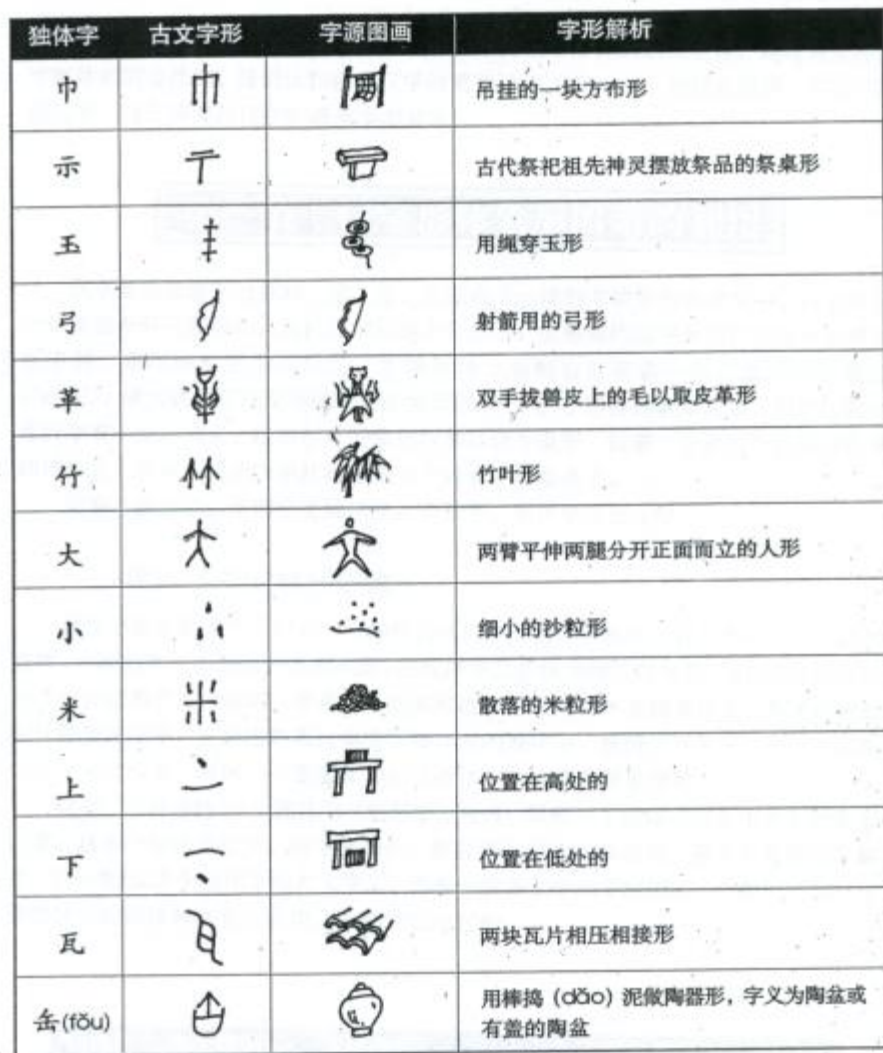 独体字 古文字形 字源图画 字形解析
巾 吊挂的一块方布形
示 古代祭祀祖先神灵摆放祭品的祭桌形
玉 用绳穿玉形
弓 射箭用的弓形
革 双手拔兽皮上的毛以取皮革形
竹 竹叶形
大 两臂平伸两腿分开正面而立的人形
小 细小的沙粒形
米 散落的米粒形
上 位置在高处的
下 位置在低处的
瓦 两块瓦片相压相接形
缶(fǒu) 用棒捣（dǎo）泥做陶器形，字义为陶盆或
有盖的陶盆